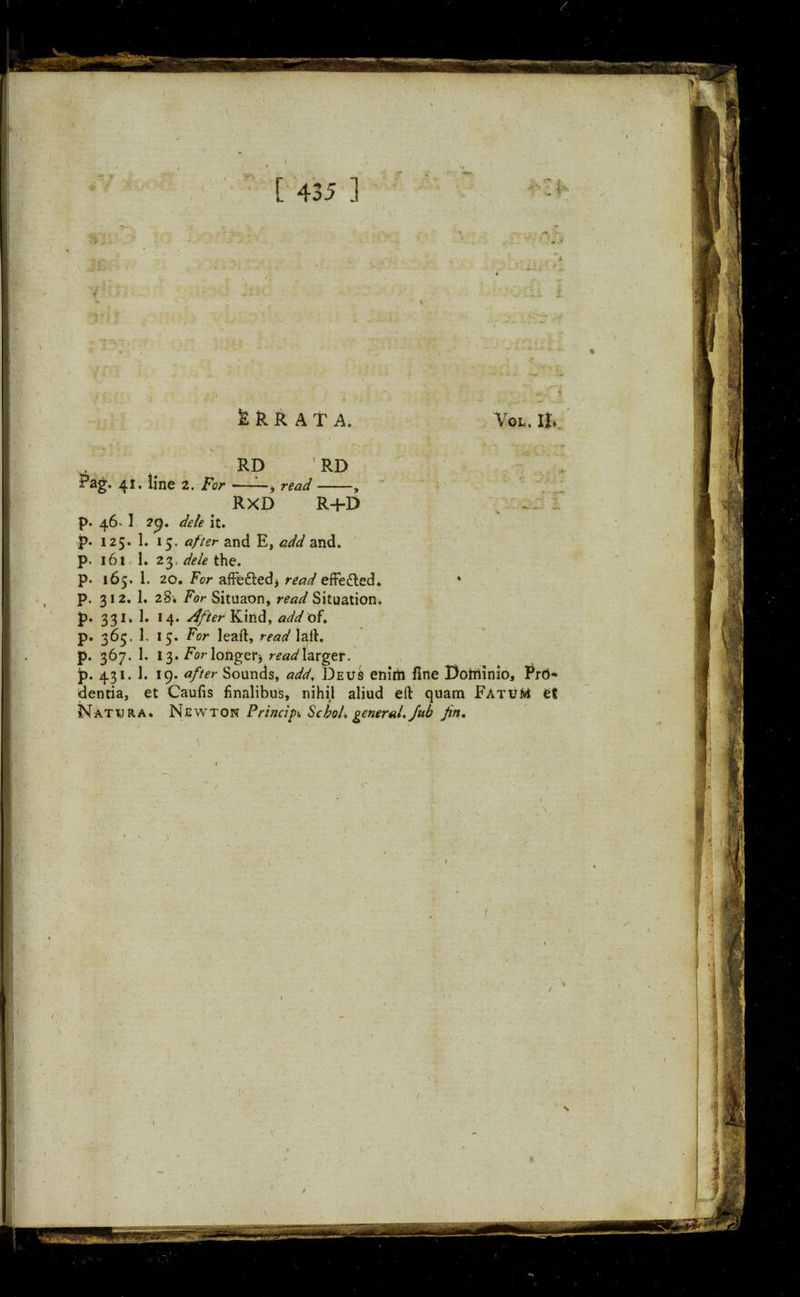 [ 435 ]
ERRATA. VOL. II.
RD RD
Pag. 41. line 2. For ——, read ——,
RXD R+D
p. 46. l 29. dele it.
p. 125. l. 15. after and E, add and.
p. 161 l. 23. dele the.
p. 165. l. 20. For affećted, read effećted.
p. 312. l. 28. For Situaon, read Situation.
p. 331. l. 14. After Kind, add of.
p. 365. l. 15. For leaſt, read laſt.
p. 367. l. 13. For longer, read larger.
p. 431. l. 19. after Sounds, add, DEUS enim ſine Dominio, Pro-
dentia, et Cauſis finalibus, nihil aliud eſt quam FATUM et
NATURA. NEWTON Princip. Schol. general. ſub fin.